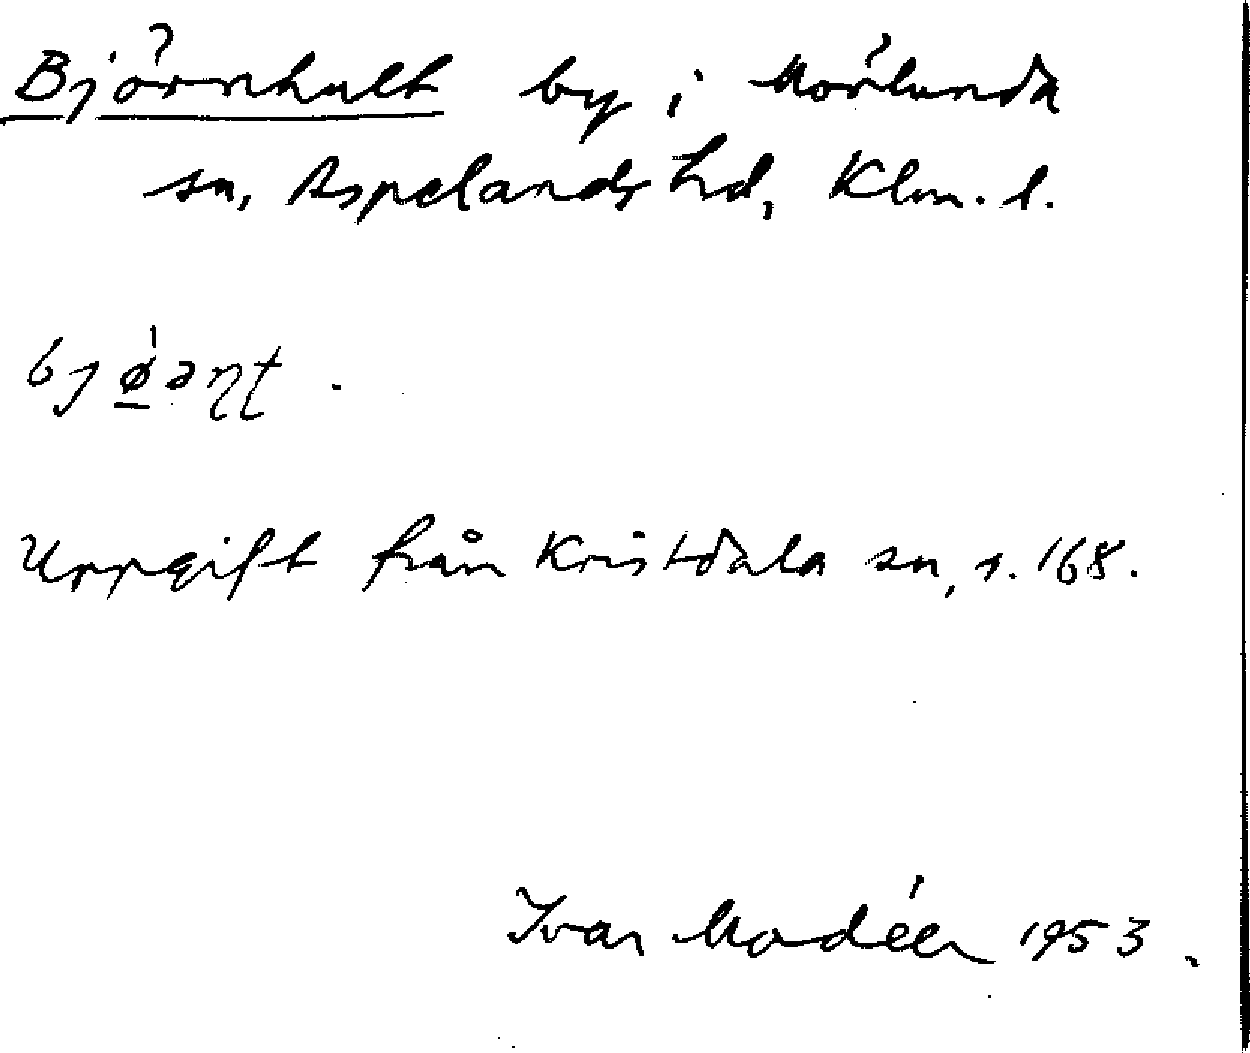 Björnhult by i Mörlunda
sn, Aspelands hd, Klm. l.
bjø̱̍əɳʈ.
Uppgift från Kristdala sn, s. 168.
Ivar Modéer 1953.